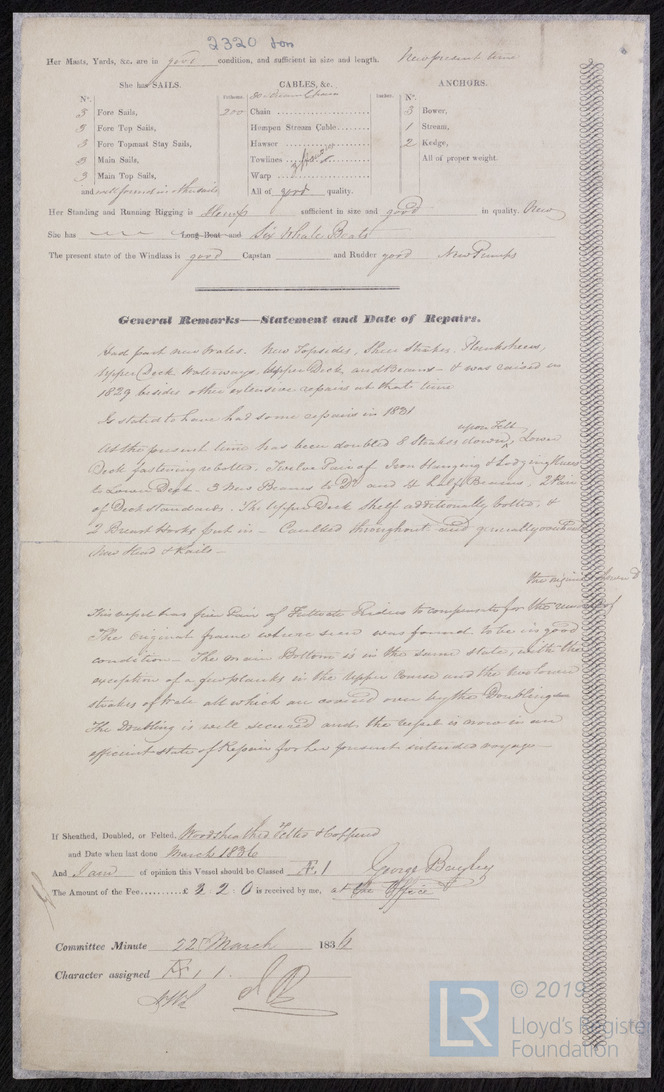 2320 ton
Her Masts, Yards, &c. are in good condition, and sufficient in size and length. New present time
She has SAILS. CABLES, &c. ANCHORS.
N°. Fathoms Inches. N°.
3 Fore Sails, 200 Chain 3 Bower,
3 Fore Top Sails, Hempen Stream Cable 1 Stream,
3 Fore Topmast Stay Sails, Hawser 2 Kedge,
3 Main Sails, Towlines All of proper weight.
3 Main Top Sails, Warp
and well found in other sails All of good quality.
Her Standing and Running Rigging is Hemp sufficient in size and good in quality. New
She has Long Boat and Six Whale Boats
The present state of the Windlass is good Capstan and Rudder good New Pumps
General Remarks—Statement and Date of Repairs.
Had part new Wales. New Topsides, Sheer Strakes, Planksheers,
Upper Deck Waterways, Upper Deck and Beams - & was raised in
1829 besides other extensive repairs at that time
Is stated to have had some repairs in 1831
upon Felt
At the present time has been doubled 8 Strakes down, Lower
Deck fastening rebolted. Twelve Pair of Iron Hanging & Lodging Knees
to Lower Deck - 3 New Beams to D° and 4 half Beams, 2 Pair
of Deck Standards. The Upper Deck Shelf additionally bolted, &
2 Breast Hooks put in - Caulked throughout and generally
New Head & Rails -
This vessel has five Pair of Futtock Riders to compensate for the of
The original frame where seen was found to be in good
condition - The main Bottom is in the same state, with the
exception of a few planks in the upper Course and the two lower
strakes of Wale all which are covered over by the Doubling
The Doubling is well secured and the vessel is now in an
efficient state of Repair for her present intended voyage -
If Sheathed, Doubled, or Felted, Woodsheathed Felted & Coppered
and Date when last done March 1836
And I am of opinion this Vessel should be Classed Æ.1 George Bayley
The Amount of the Fee £ 2 : 0 is received by me, at the Office
Committee Minute 22 March 1836
Character assigned Æ 1 1.
© 2019
LR
Lloyd's Register
Foundation